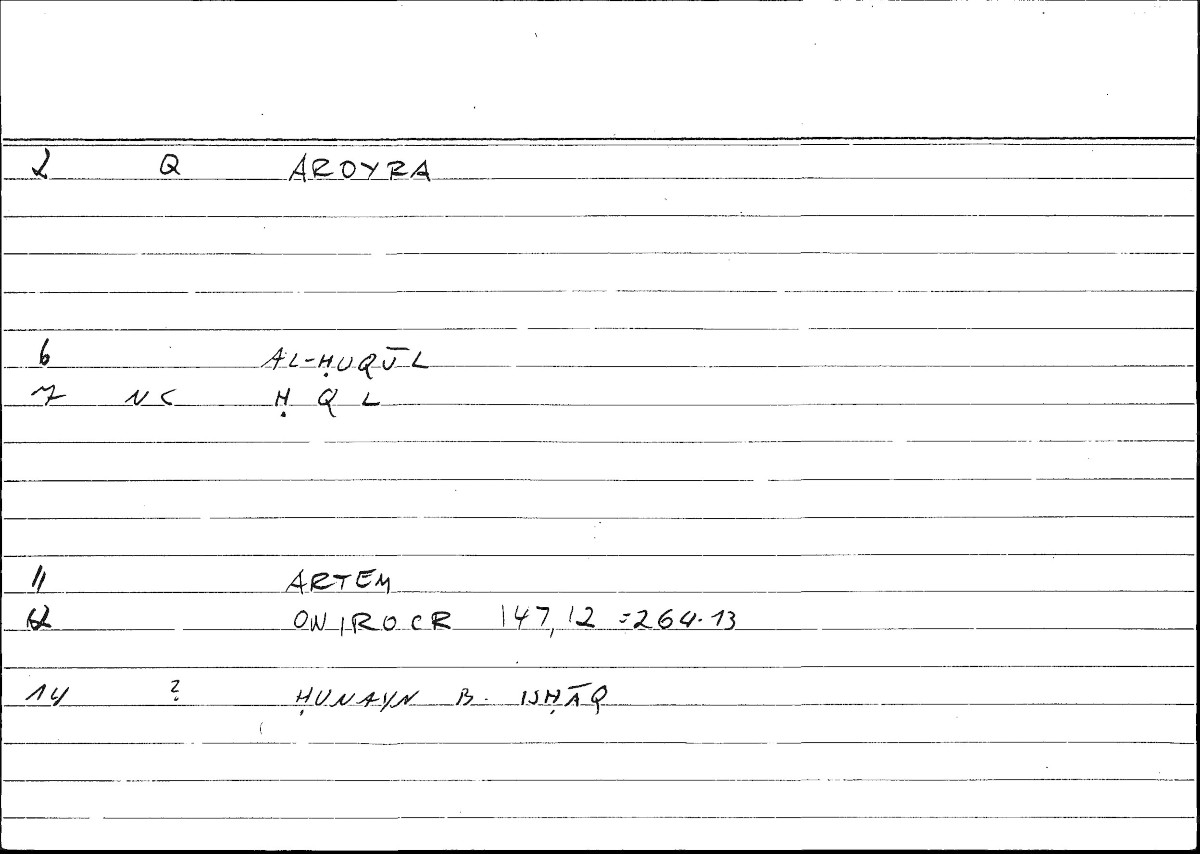 2 Q AROYRA
6 AL-ḤUQŪL
7 NC Ḥ Q L
11 ARTEM
12 ONIROCR 147,12 =264.13
14 ? ḤUNAYN B. ISḤĀQ